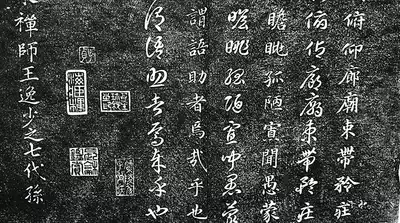 俯仰廊廟束帶矜莊
俯仰廊廟束帶矜莊
瞻眺孤陋寡聞愚蒙
瞻眺孤陋寡聞愚蒙
謂語助者焉哉乎也
謂語助者焉哉乎也
禪師王逸少之七代孫